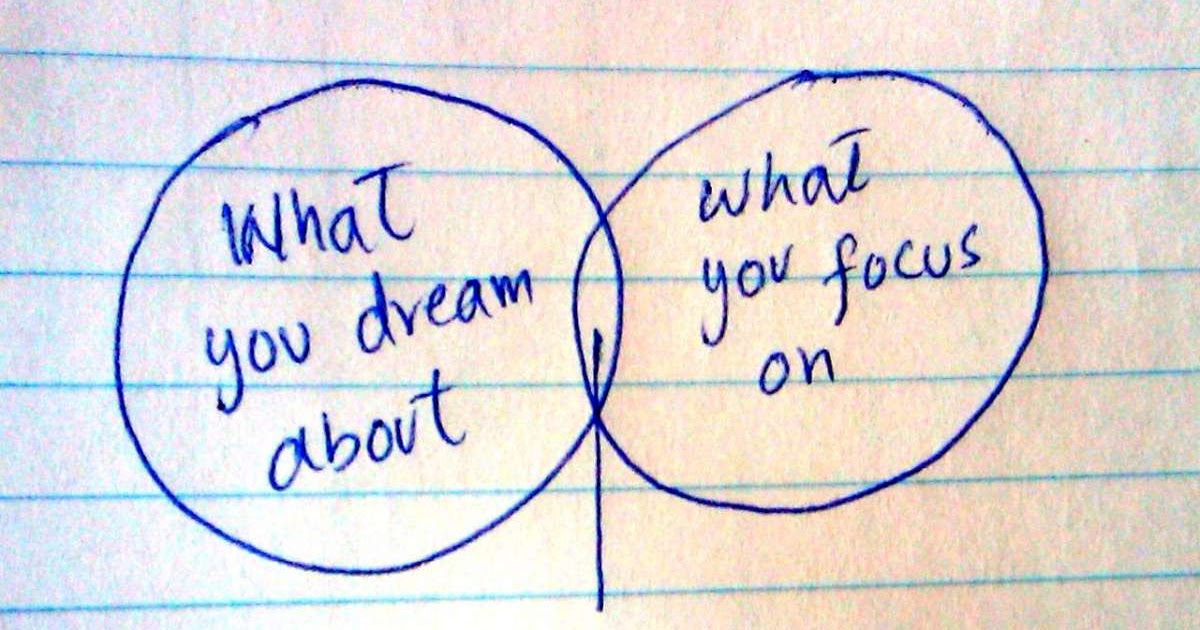 What
you dream
about
what
you focus
on